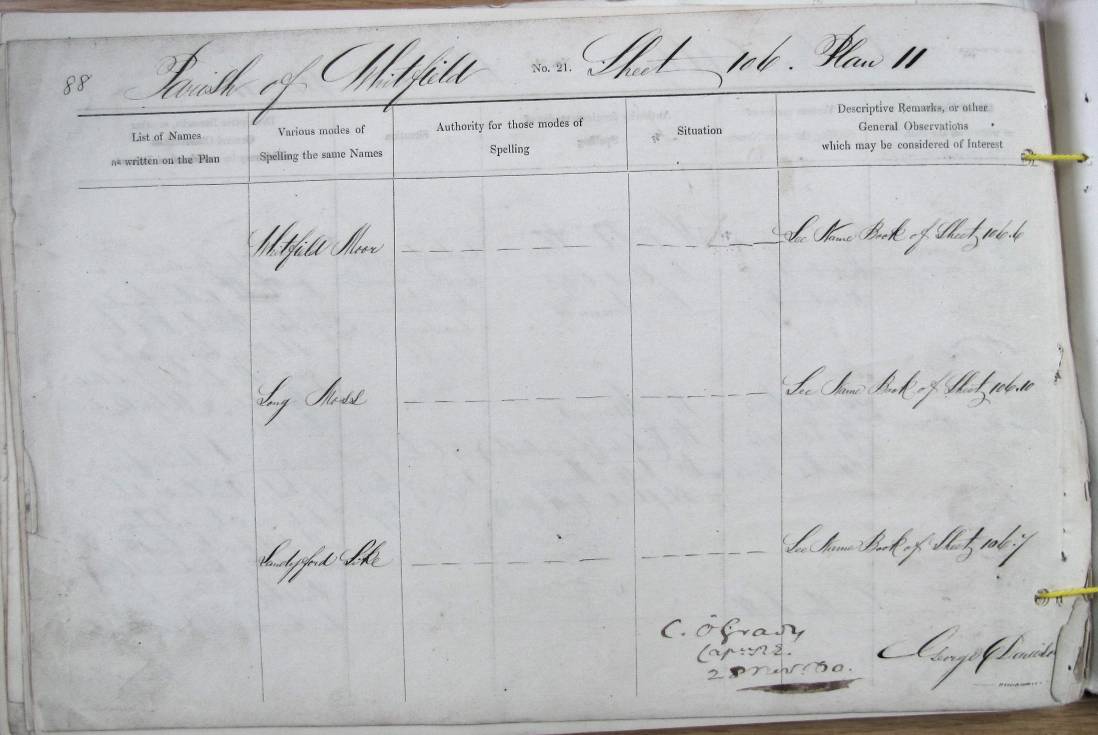 88 Parish of Whitfield No. 21. Sheet 106. Plan 11
List of Names
as written on the Plan
Various modes of
Spelling the same Names
Authority for those modes of
Spelling
Situation
Descriptive Remarks, or other
General Observations
which may be considered of Interest
Whitfield Moor See Name Book of Sheet 106.6
Long Moss See Name Book of Sheet 106.10
Sandyford Sike See Name Book of Sheet 106.7
C. O'Grady
Capt. R.E.
George